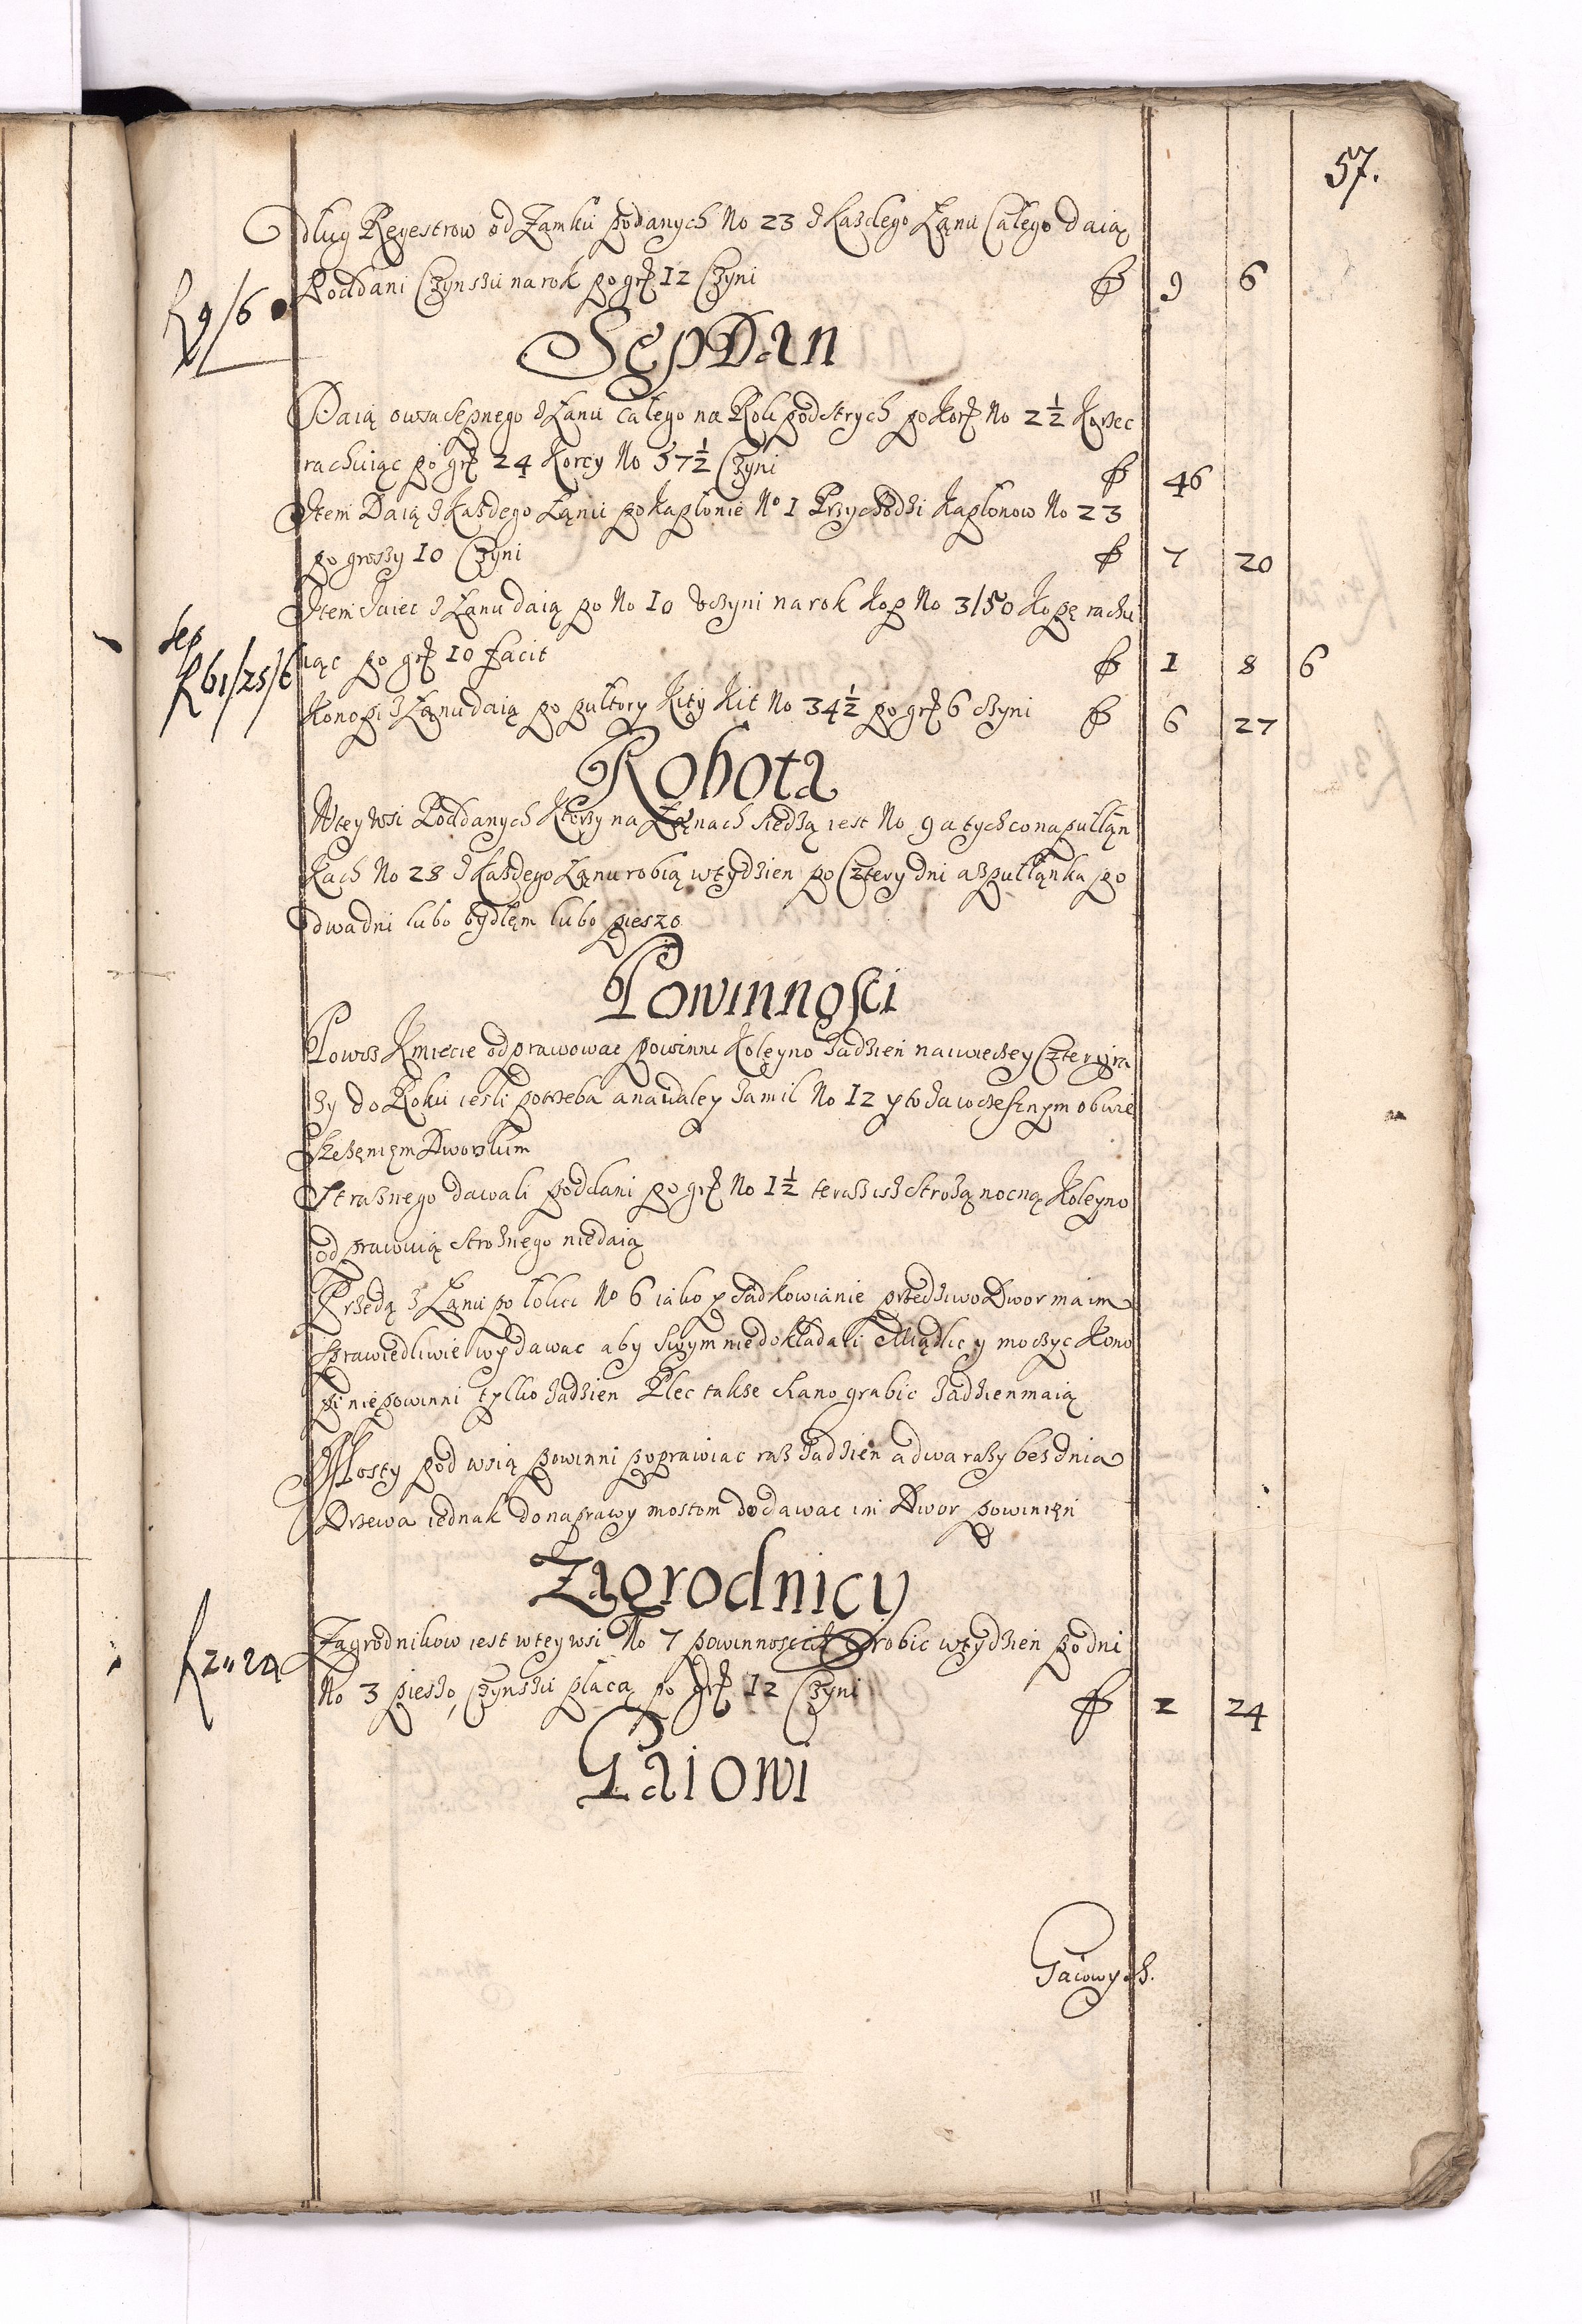 57.
Dług Regestrow od Zamku podanych No 23 z kazdego Łanu Całego daią
Poddani Czynszu na rok po gr 12 Czyni f 9 6
R 9/6
Sep Dan
Daią owsa sepnego z Łanu całego na Rok pod strych po kor No 2½ Korzec
rachuiąc po gr 24 Korcy No 57½ Czyni f 46
Item Daią z Kazdego Łanu po kapłonie No 1 Przychodzi Kapłonow No 23
po groszy 10 Czyni f 7 20
Item Jaiec z Łanu daią po No 10 Vczyni na rok kop No 3/50 Kopę rachu
iąc po gr 10 facit f 1 8 6
Sep
R 61/25/6
Konopi z Łanu daią po pułtory Kity Kit No 34½ po gr 6 czyni f 6 27
Robota
W tey Wsi Poddanych Ktorzy na Łanach siedzą iest No 9 a tych co na pułłan
kach No 28 z Kazdego Łanu robią w tydzien po Cztery dni a z pułłanka po
dwa dni lubo bydłem lubo pieszo
Powinnosci
Powoz Kmiecie odprawowac powinni Koleyno za dzien nawiecey Cztery ra
zy do Roku iesli potrzeba a naydaley za mil No 12 y to za wczesznym obwie
szczeniem Dworskim
Straznego dawali poddani po gr No 1½ teraz isz Strożą nocną Koleyno
odprawuią Stroznego nie daią
Przędą z Łanu po łokci No 6 iako y Sadkowianie przędziwo Dwor ma im
sprawiedliwie wydawac aby swym nie dokładali Miądlic y moczyc Kono
pi nie powinni tylko za dzien Plec takze siano grabic za dzien maią
Mosty pod wsią powinni poprawiac raz za dzien a dwa razy bez dnia
Drzewa iednak do naprawy mostom dodawac im Dwor powinien
Zagrodnicy
Zagrodnikow iest w tey wsi No 7 powinnosc ich robic w tydzien po dni
R 2 24
No 3 pieszo, Czynszu płacą po gr 12 Czyni f 2 24
Gaiowi
Gaiowych.